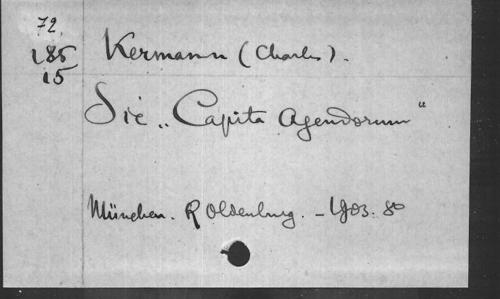 72
185 Kermann (Charles).
15
Die „Capita Agendorum“
München. R Oldenburg. – 1903. 8o